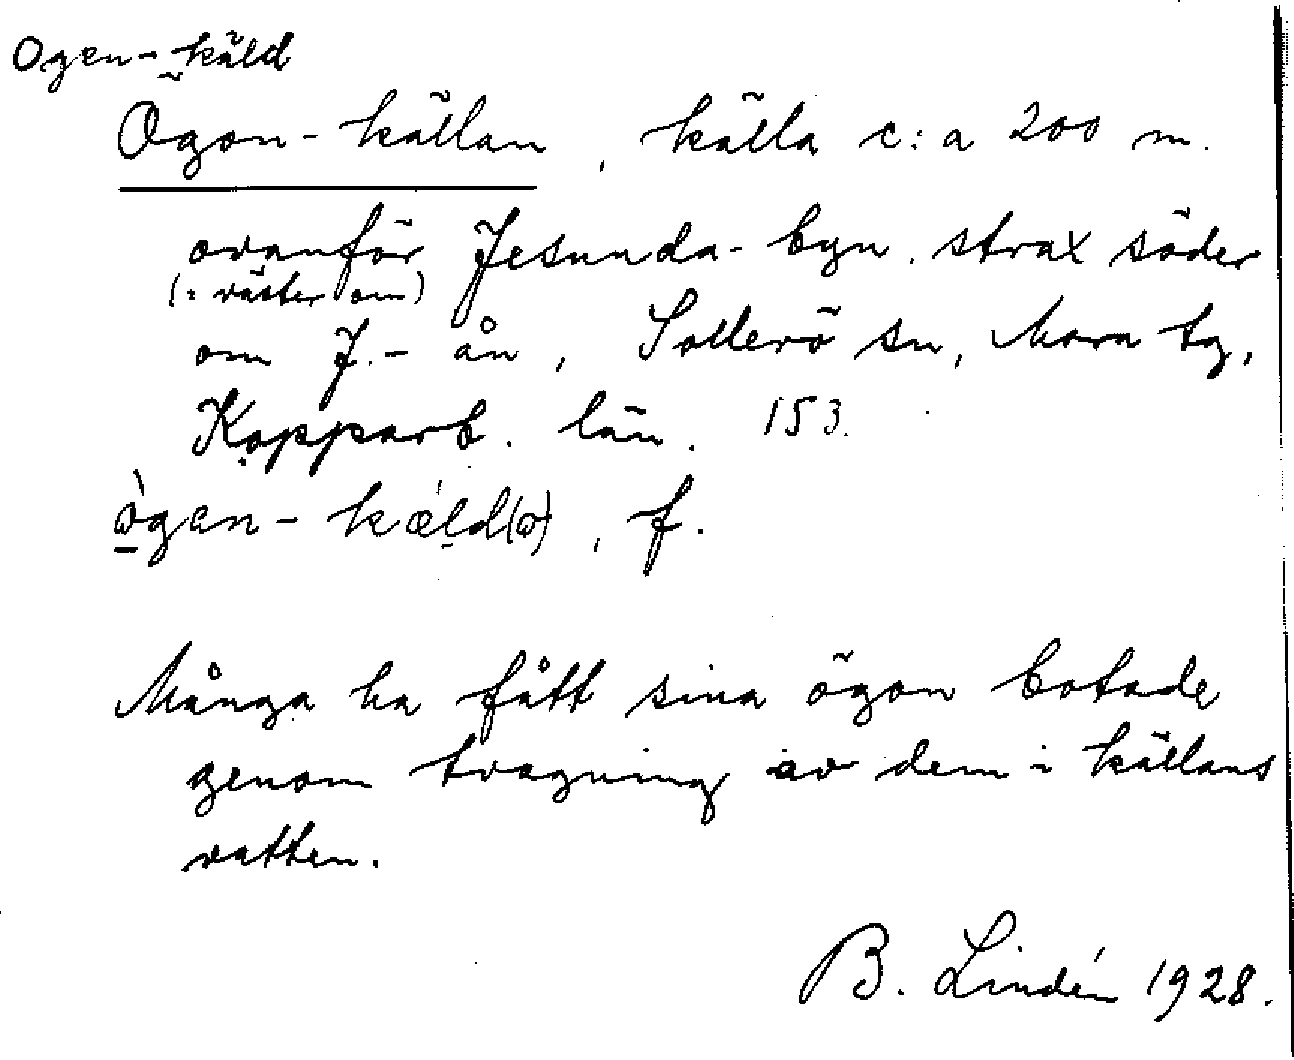 Ogen-käld
Ögon-källan, källa c:a 200 m.
ovanför Jesunda-byn, strax söder
(: väster om)
om J.-ån, Sollerö sn, Mora tg,
Kopparb. län. 153.
ògen-kæ̀ld(a), f.
Många ha fått sina ögon botade
genom tvagning av dem i källans
vatten.
B. Lindén 1928.